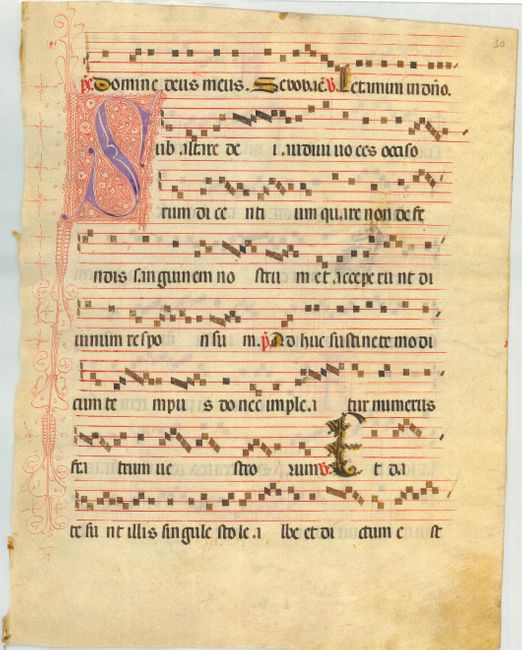 30
℣. Domine deus meus. Seuouae. ℣. Letamini in dño.
Sub altare de i audiui uoces occiso
rum di ce nti um quare non defe
ndis sanguinem no stru m et accepe ru nt di
uinum respo n su m. ℟. Ad huc sustinete modi
cum te mpu s donec imple a tur numerus
fra trum ue stro rum ℣. Et da
te su nt illis singule stole a lbe et di ctum e st